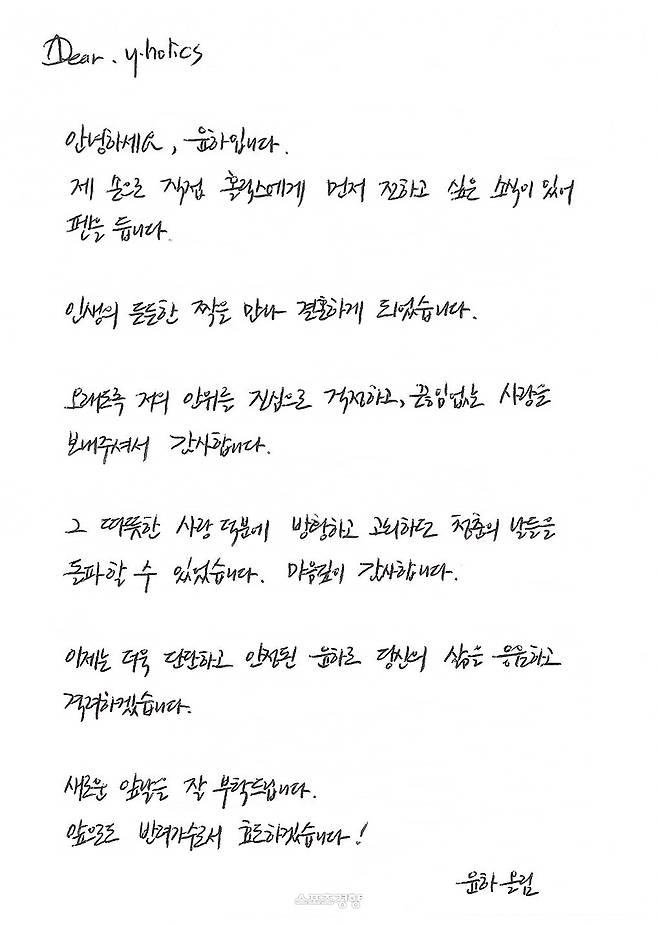 Dear. y.holics
안녕하세요, 윤하입니다.
제 손으로 직접 홀릭스에게 먼저 전하고 싶은 소식이 있어
펜을 듭니다.
인생의 든든한 짝을 만나 결혼하게 되었습니다.
오래도록 저의 안위를 진심으로 걱정하고, 끊임없는 사랑을
보내주셔서 감사합니다.
그 따뜻한 사랑 덕분에 방황하고 고뇌하던 청춘의 날들을
돌파할 수 있었습니다. 마음깊이 감사합니다.
이제는 더욱 단단하고 안정된 윤하로 당신의 삶을 응원하고
격려하겠습니다.
새로운 앞날을 잘 부탁드립니다.
앞으로도 반려가수로서 효도하겠습니다!
윤하 올림
스포츠경향